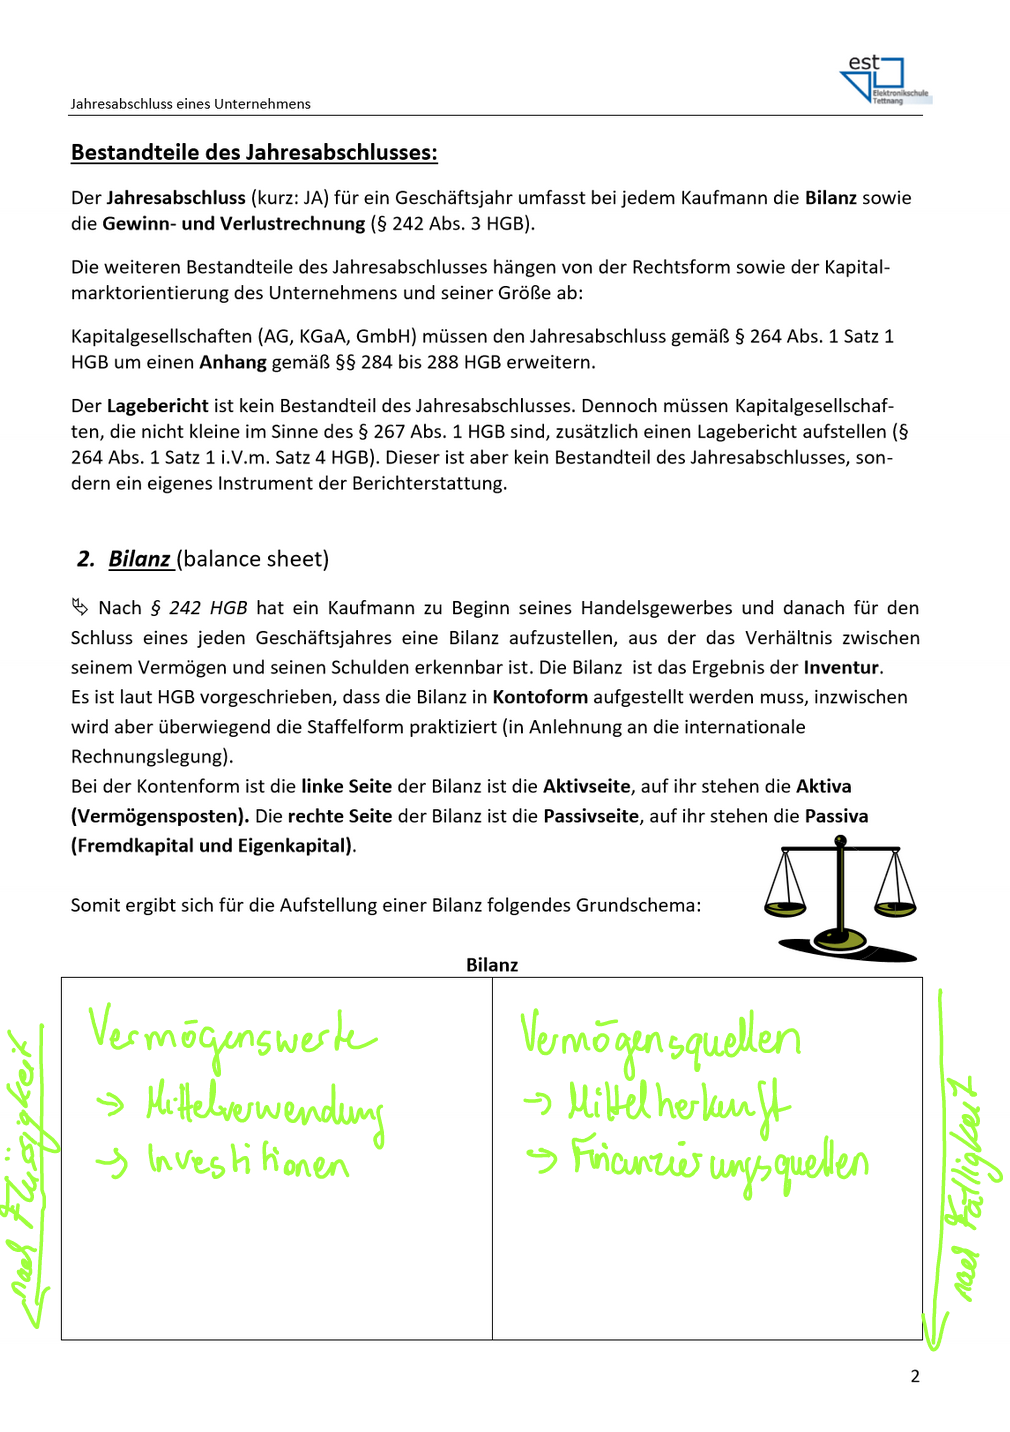 est
Elektronikschule
Tettnang
Jahresabschluss eines Unternehmens
Bestandteile des Jahresabschlusses:
Der Jahresabschluss (kurz: JA) für ein Geschäftsjahr umfasst bei jedem Kaufmann die Bilanz sowie
die Gewinn- und Verlustrechnung (§ 242 Abs. 3 HGB).
Die weiteren Bestandteile des Jahresabschlusses hängen von der Rechtsform sowie der Kapital-
marktorientierung des Unternehmens und seiner Größe ab:
Kapitalgesellschaften (AG, KGaA, GmbH) müssen den Jahresabschluss gemäß § 264 Abs. 1 Satz 1
HGB um einen Anhang gemäß §§ 284 bis 288 HGB erweitern.
Der Lagebericht ist kein Bestandteil des Jahresabschlusses. Dennoch müssen Kapitalgesellschaf-
ten, die nicht kleine im Sinne des § 267 Abs. 1 HGB sind, zusätzlich einen Lagebericht aufstellen (§
264 Abs. 1 Satz 1 i.V.m. Satz 4 HGB). Dieser ist aber kein Bestandteil des Jahresabschlusses, son-
dern ein eigenes Instrument der Berichterstattung.
2. Bilanz (balance sheet)
Nach § 242 HGB hat ein Kaufmann zu Beginn seines Handelsgewerbes und danach für den
Schluss eines jeden Geschäftsjahres eine Bilanz aufzustellen, aus der das Verhältnis zwischen
seinem Vermögen und seinen Schulden erkennbar ist. Die Bilanz ist das Ergebnis der Inventur.
Es ist laut HGB vorgeschrieben, dass die Bilanz in Kontoform aufgestellt werden muss, inzwischen
wird aber überwiegend die Staffelform praktiziert (in Anlehnung an die internationale
Rechnungslegung).
Bei der Kontenform ist die linke Seite der Bilanz ist die Aktivseite, auf ihr stehen die Aktiva
(Vermögensposten). Die rechte Seite der Bilanz ist die Passivseite, auf ihr stehen die Passiva
(Fremdkapital und Eigenkapital).
Somit ergibt sich für die Aufstellung einer Bilanz folgendes Grundschema:
Bilanz
Vermögenswerte
→ Mittelverwendung
→ Investitionen
Vermögensquellen
→ Mittelherkunft
→ Finanzierungsquellen
nach Flüssigkeit
nach Fälligkeit
2